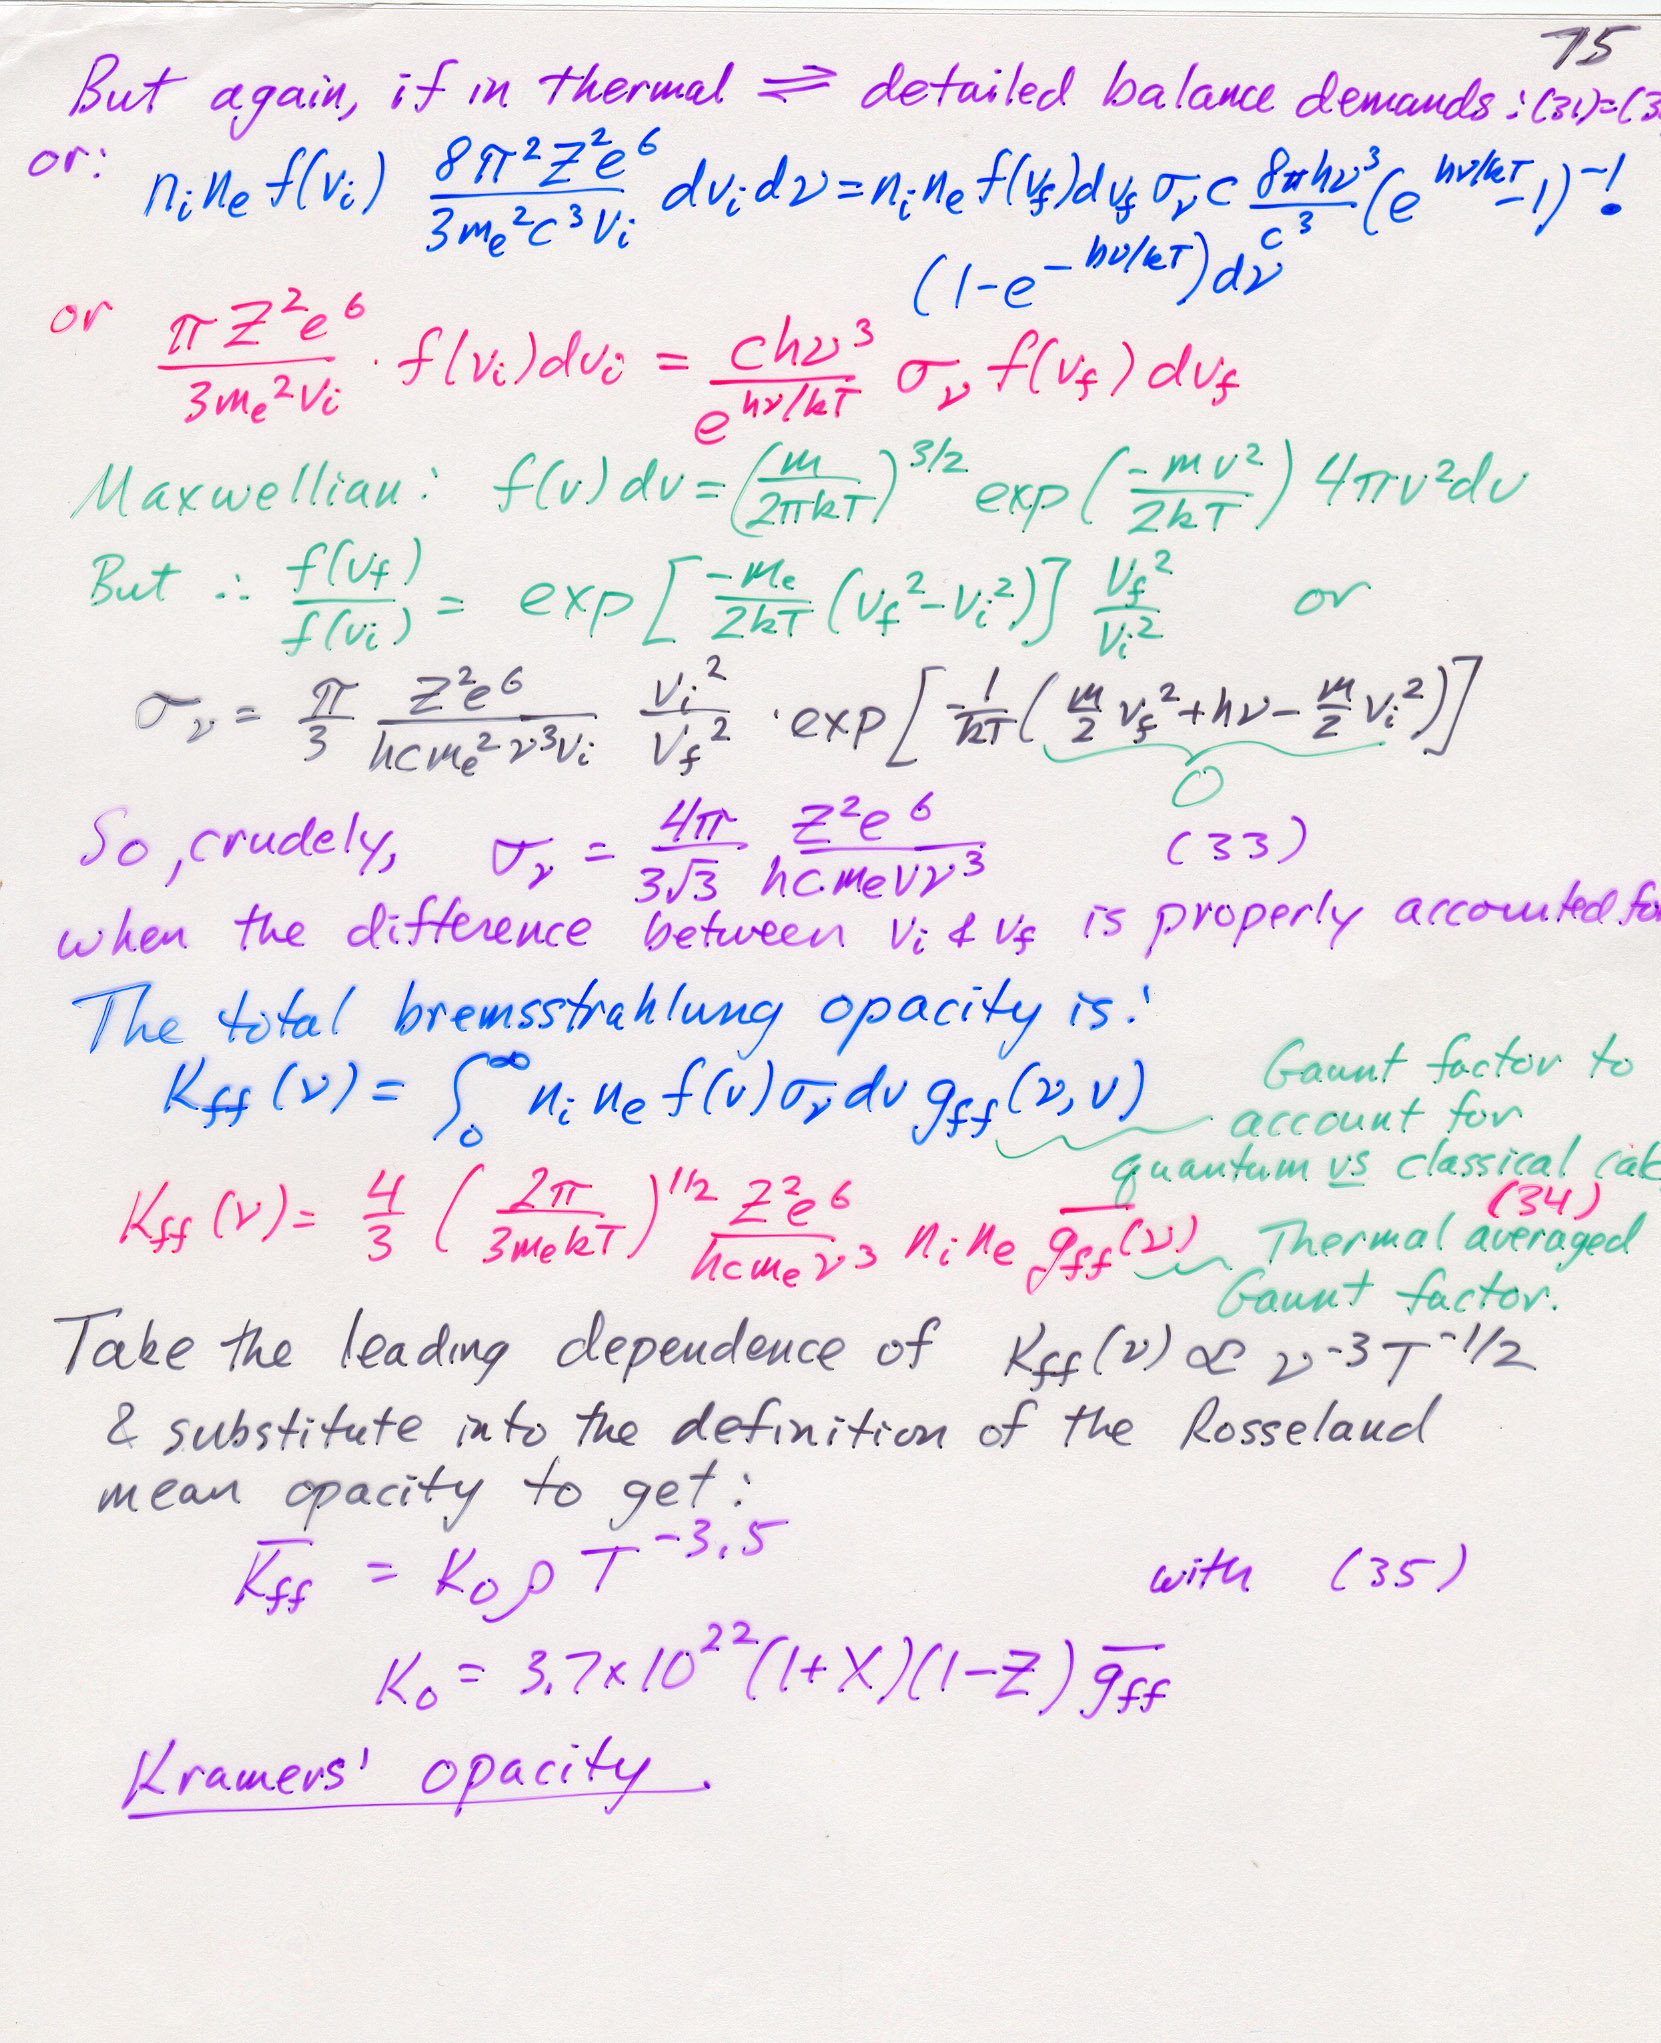 75
But again, if in thermal ⇌ detailed balance demands: (31)=(3
or: nᵢnₑ f(vᵢ) 8π²Z²e⁶/3mₑ²c³vᵢ dvᵢdν = nᵢnₑ f(v_f)dv_f σ_ν c 8πhν³/c³ (e^{hν/kT}-1)⁻¹·
(1-e^{-hν/kT})dν
or πZ²e⁶/3mₑ²vᵢ · f(vᵢ)dvᵢ = chν³/e^{hν/kT} σ_ν f(v_f)dv_f
Maxwellian: f(v)dv = (m/2πkT)^{3/2} exp(-mv²/2kT) 4πv²dv
But ∴ f(v_f)/f(vᵢ) = exp[-mₑ/2kT (v_f²-vᵢ²)] v_f²/vᵢ² or
σ_ν = π/3 Z²e⁶/hcmₑ²ν³vᵢ vᵢ²/v_f² · exp[-1/kT(m/2 v_f²+hν-m/2 vᵢ²)]
0
So, crudely, σ_ν = 4π/3√3 Z²e⁶/hcmₑvν³ (33)
when the difference between vᵢ & v_f is properly accounted fo
The total bremsstrahlung opacity is:
K_ff(ν) = ∫₀^∞ nᵢnₑ f(v)σ_ν dv g_ff(ν,v)
Gaunt factor to
account for
quantum vs classical calc
K_ff(ν) = 4/3 (2π/3mₑkT)^{1/2} Z²e⁶/hcmₑν³ nᵢnₑ \overline{g_ff}(ν) (34)
Thermal averaged
Gaunt factor.
Take the leading dependence of K_ff(ν) ∝ ν⁻³T^{-1/2}
& substitute into the definition of the Rosseland
mean opacity to get:
\overline{K_ff} = K₀ρT^{-3.5} with (35)
K₀ = 3.7×10²²(1+X)(1-Z) \overline{g_ff}
Kramers' opacity.